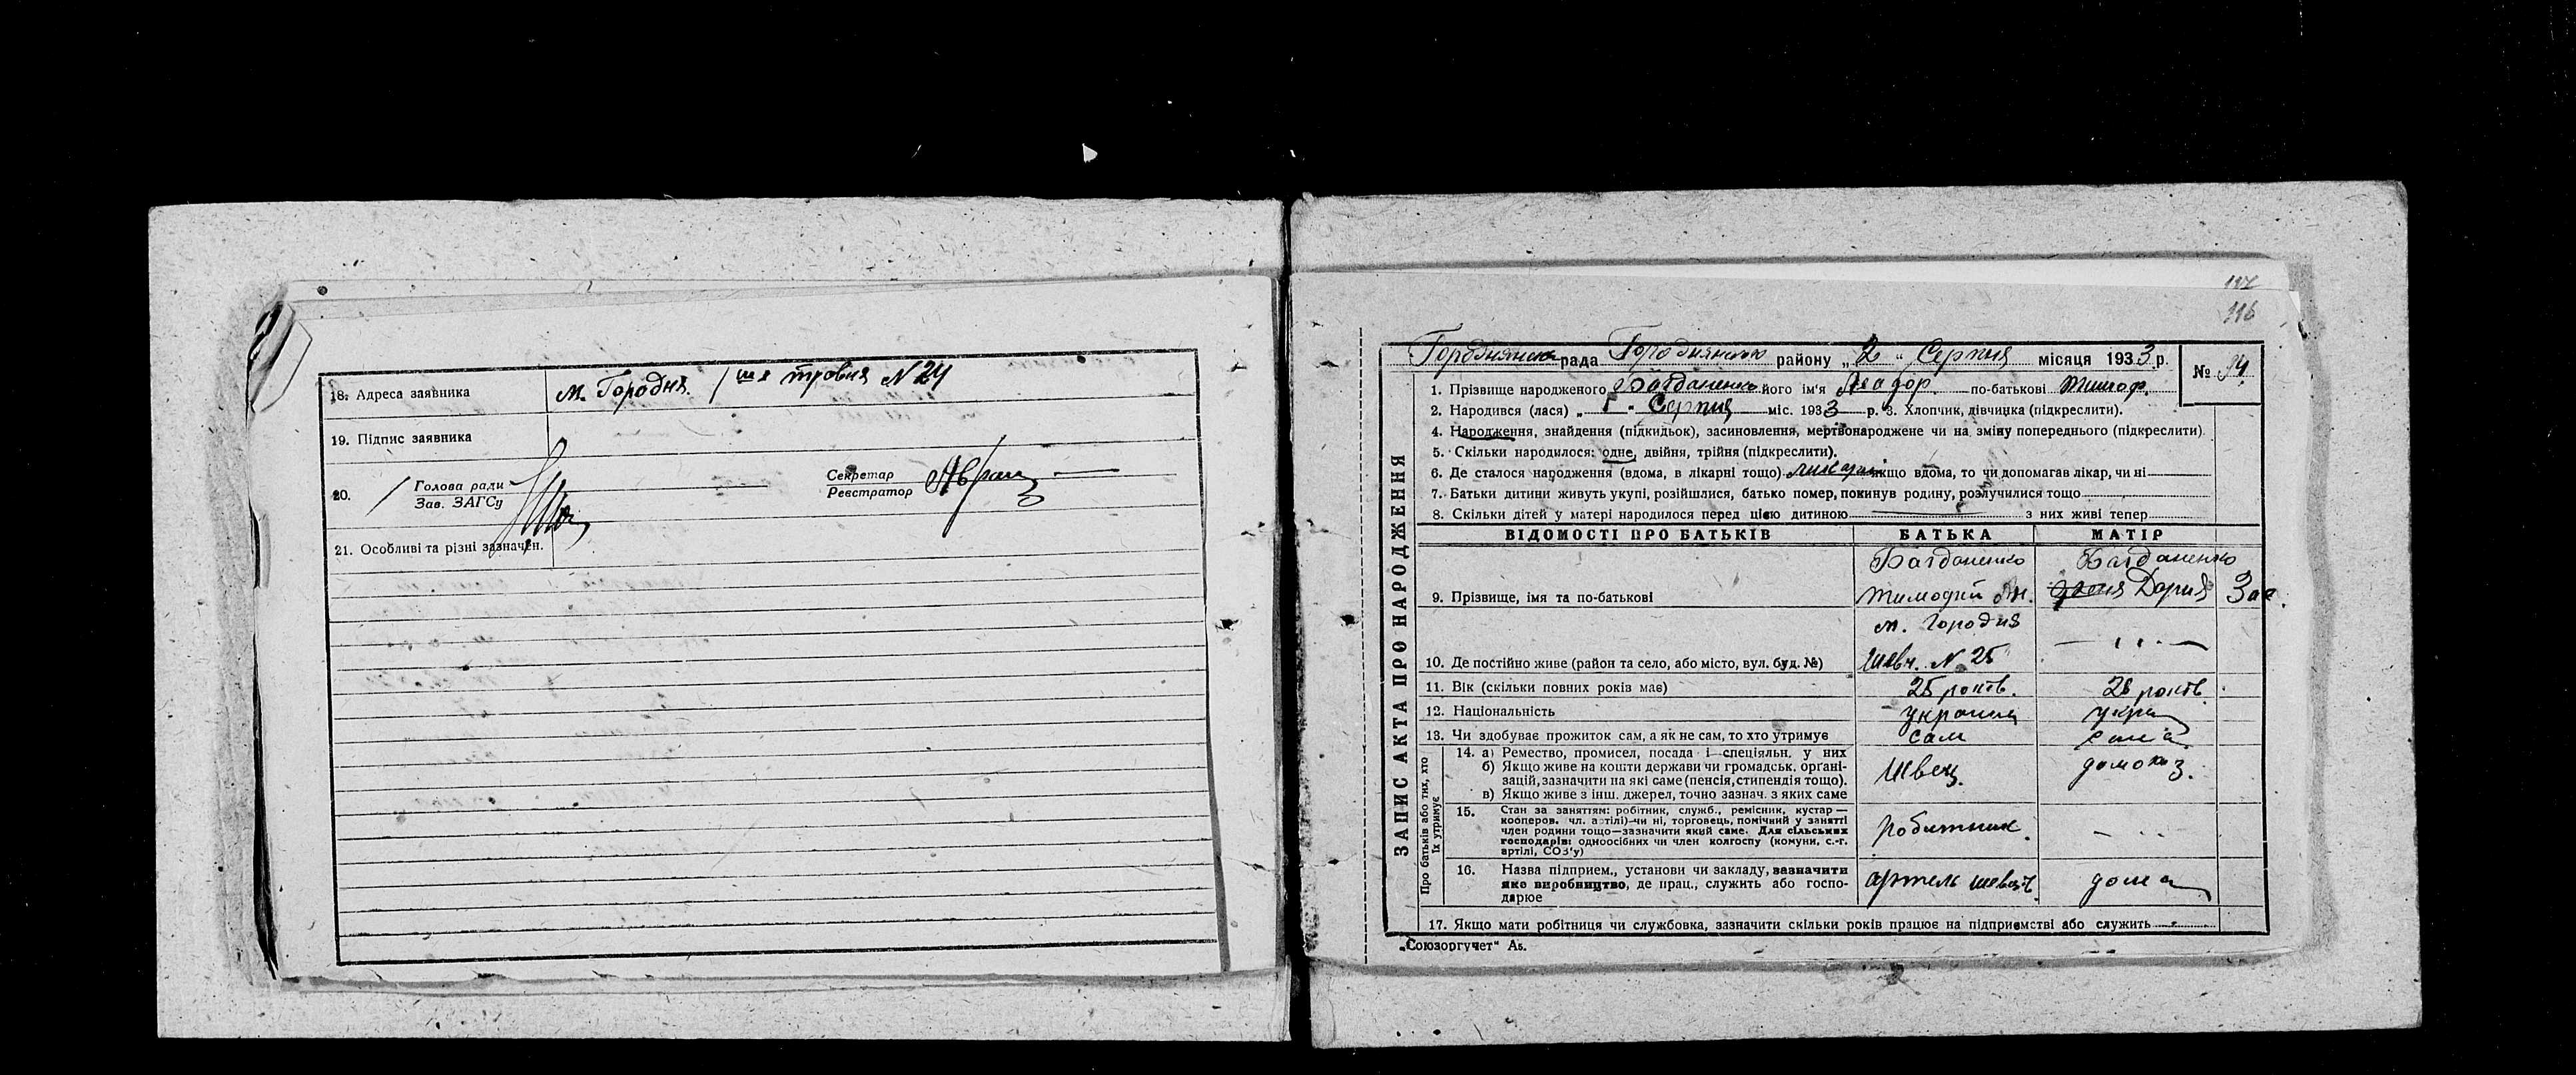 18. Адреса заявника м. Городня. 1 ша травня N 24
19. Підпис заявника
20. Голова ради
Зав. ЗАГСу
Секретар
Реєстратор
21. Особливі та різні зазначен.
117
116
Городнянська рада Городнянського району „2“ Серпня місяця 1933 р. № 94.
1. Прізвище народженого Богданенко його ім'я по-батькові Тимоф.
2. Народився (лася) „1“ Серпня міс. 1933 р. 3. Хлопчик, дівчинка (підкреслити).
4. Народження, знайдення (підкидьок), засиновлення, мертвонароджене чи на зміну попереднього (підкреслити)
5. Скільки народилося: одне, двійня, трійня (підкреслити).
6. Де сталося народження (вдома, в лікарні тощо) лікарні якщо вдома, то чи допомагав лікар, чи ні
7. Батьки дитини живуть укупі, розійшлися, батько помер, покинув родину, розлучилися тощо
8. Скільки дітей у матері народилося перед цією дитиною з них живі тепер
ЗАПИС АКТА ПРО НАРОДЖЕННЯ
ВІДОМОСТІ ПРО БАТЬКІВ БАТЬКА МАТІР
Богданенко Богданенко
9. Прізвище, імя та по-батькові Тимофій Дария Зах.
м. Городня
10. Де постійно живе (район та село, або місто, вул. буд. №) Шевч. N 25 — „ —
11. Вік (скільки повних років має) 25 років. 28 років.
12. Національність україн укра
13. Чи здобуває прожиток сам, а як не сам, то хто утримує сам сама
Про батьків або тих, хто
їх утримує
14. а) Ремество, промисел, посада і спеціяльн. у них
б) Якщо живе на кошти держави чи громадськ. органі-
зацій, зазначити на які саме (пенсія, стипендія тощо). Швец. домохаз.
в) Якщо живе з інш. джерел, точно зазнач. з яких саме
15. Стан за заняттям: робітник, служб., ремісник, кустар—
кооперов. чл. артілі)—чи ні, торговець, помічний у занятті
член родини тощо—зазначити який саме. Для сільських робитник. — „ —
господарів: одноосібних чи член колгоспу (комуни, с.-г.
артілі, СОЗ'у)
16. Назва підприєм., установи чи закладу, зазначити
яке виробництво, де прац., служить або госпо- артель шевців дома
дарює
17. Якщо мати робітниця чи службовка, зазначити скільки років працює на підприємстві або служить
„Союзоргучет“ А5.